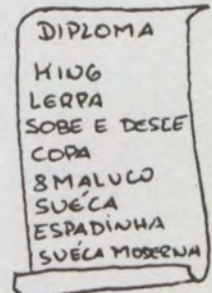 DIPLOMA
KING
LERPA
SOBE E DESCE
COPA
8 MALUCO
SUÉCA
ESPADINHA
SUÉCA MODERNA